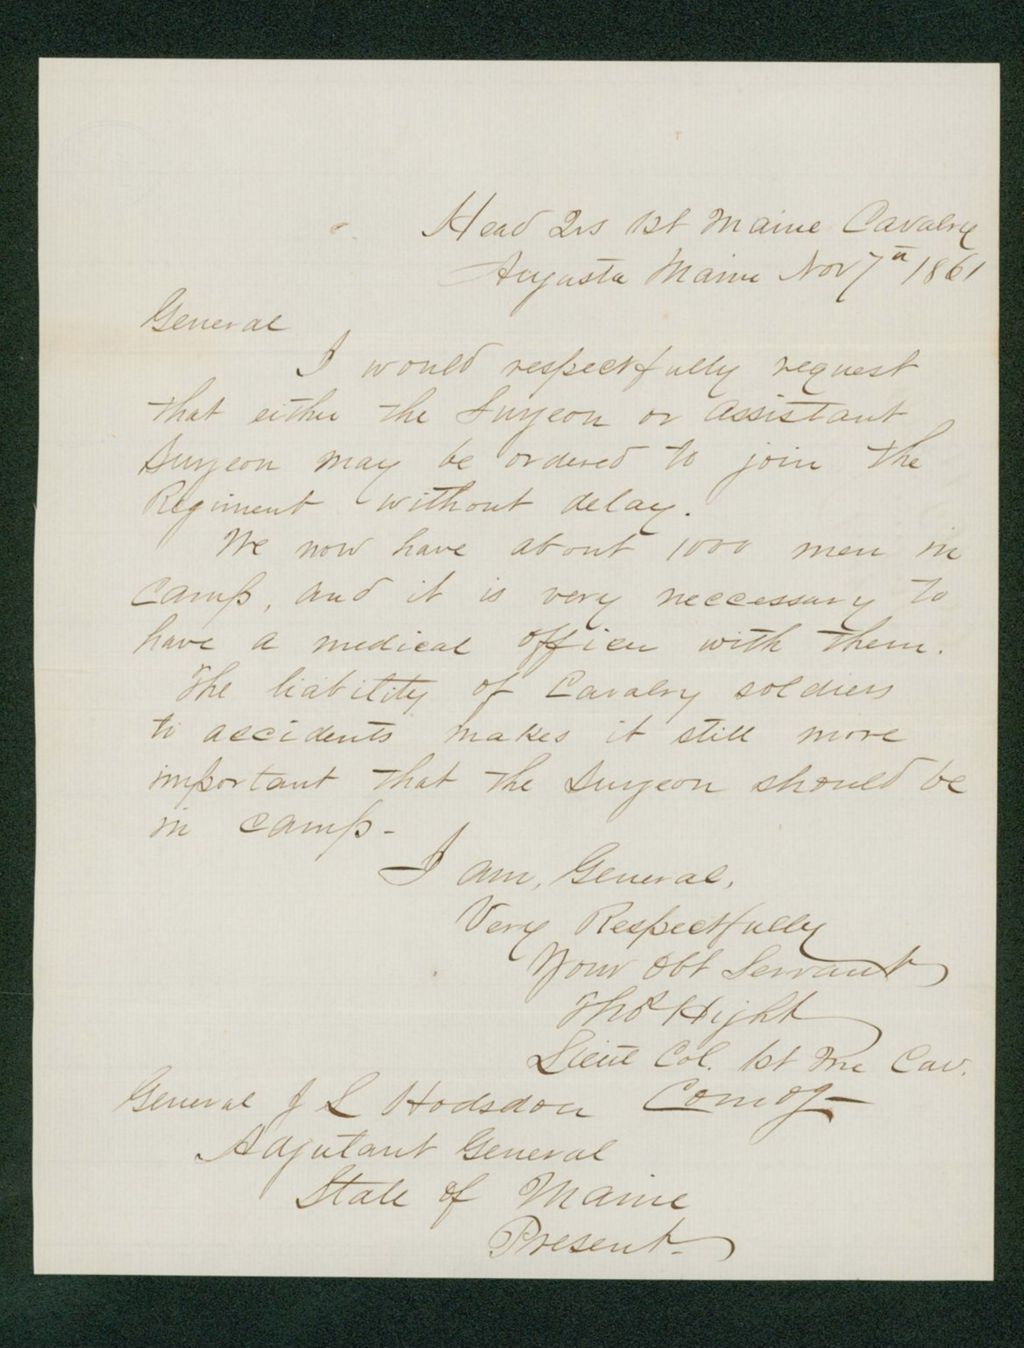 Head Qrs 1st Maine Cavalry
Augusta Maine Nov 7th 1861
General
I would respectfully request
that either the Surgeon or Assistant
Surgeon may be ordered to join the
Regiment without delay.
We now have about 1000 men in
camp, and it is very neccessary to
have a medical officer with them.
The liability of Cavalry soldiers
to accidents makes it still more
important that the Surgeon should be
in camp-
I am, General,
Very Respectfully
Your Obt Servant
Thos Hight
Lieut Col. 1st Me Cav.
Comdg-
General J L Hodsdon
Adjutant General
State of Maine
Present-